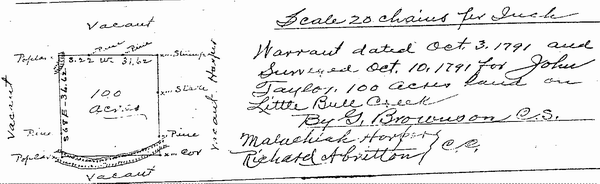 Vacant
Scale 20 chains per Inch
Pine
Pine
Poplar
S 22 W 31.62
Stump
Warrant dated Oct. 3. 1791 and
Surveyed Oct. 10, 1791 for John
Taylor. 100 acres land on
Little Bull Creek
By G. Brownson C.S.
Malachiah Harper
Richard Abritton
C.C.
100
Acres
Stake
S 68 E - 31.62
Vacant
Vacant Harper
Pine
Pine
Poplar
Cor
Vacant